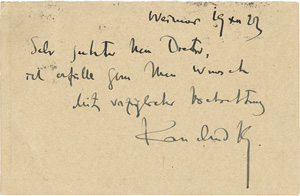 Weimar 19 XII 23
Sehr geehrter Herr Doktor,
ich erfülle gern Ihren Wunsch
Mit vorzüglicher Hochachtung
Kandinsky